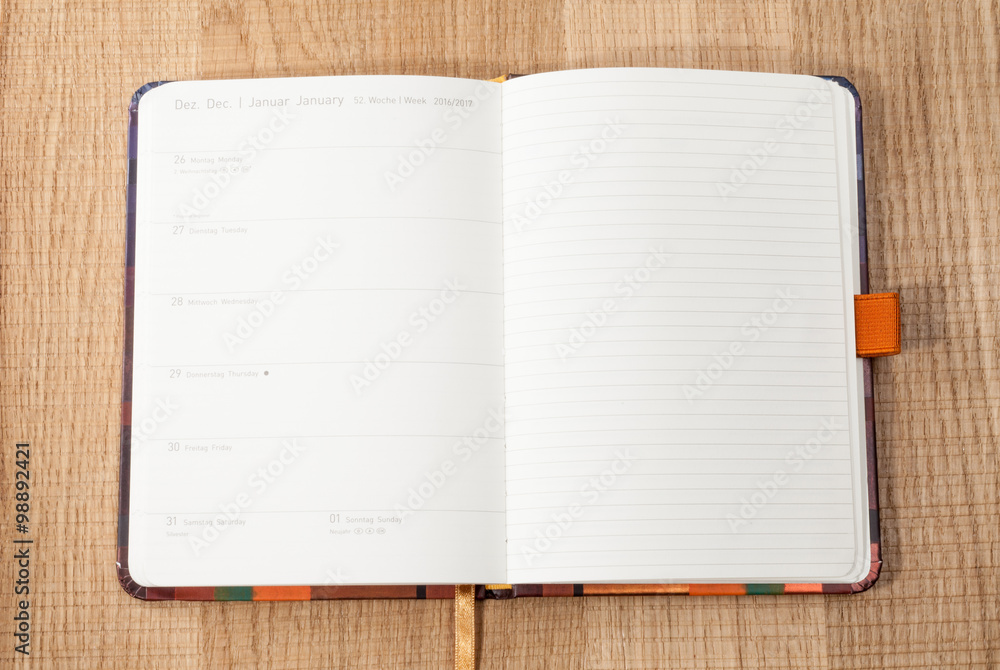 Dez. Dec. | Januar January 52. Woche | Week 2016/2017
26 Montag Monday
27 Dienstag Tuesday
28 Mittwoch Wednesday
29 Donnerstag Thursday
30 Freitag Friday
31 Samstag Saturday
01 Sonntag Sunday
Adobe Stock | #98892421